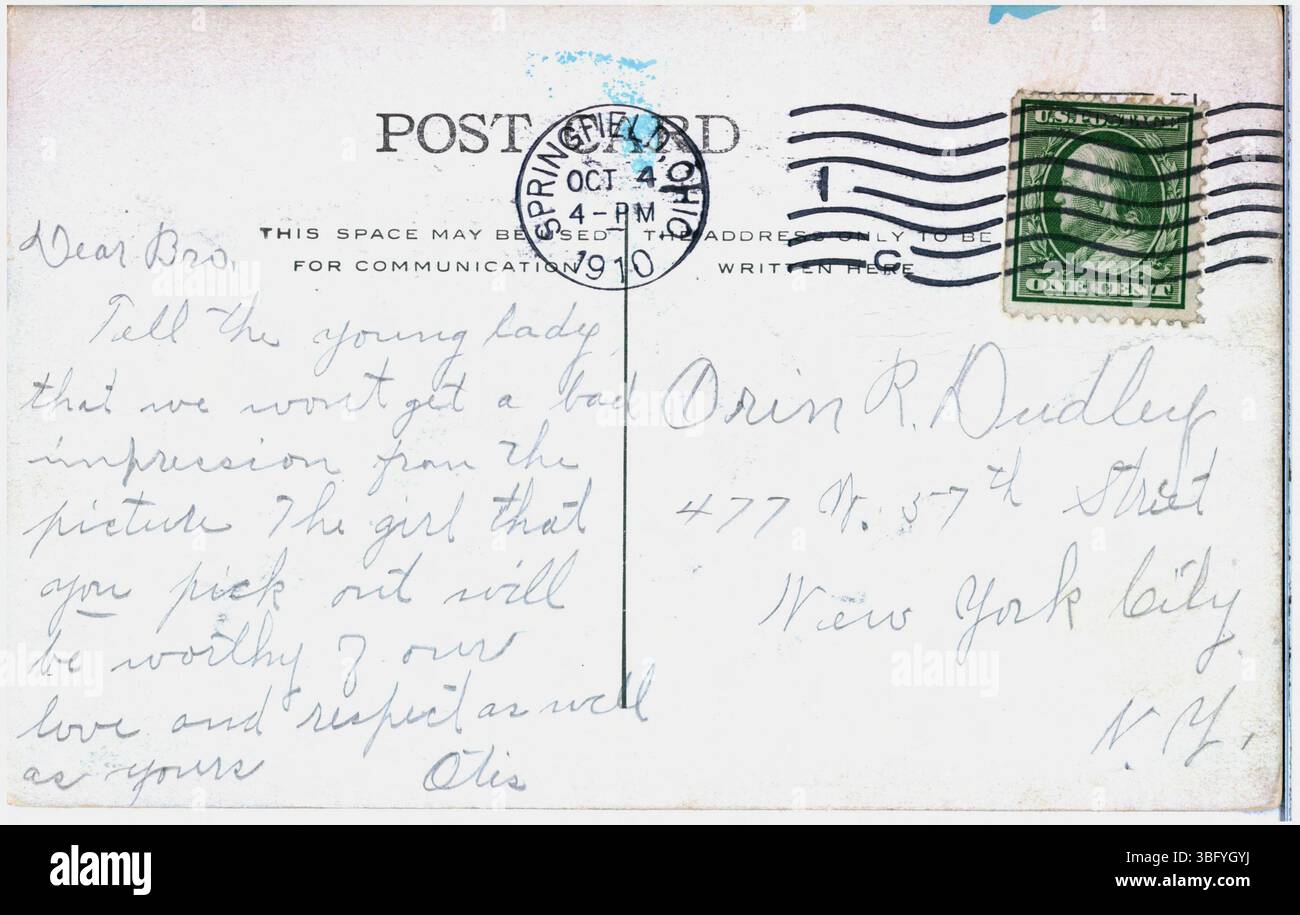 POST CARD
SPRINGFIELD, OHIO
OCT 4
4-PM
1910
1
C
U.S. POSTAGE
ONE CENT
THIS SPACE MAY BE USED
FOR COMMUNICATION
THE ADDRESS ONLY TO BE
WRITTEN HERE
Dear Bro,
Tell the young lady
that we wont get a bad
impression from the
picture The girl that
you pick out will
be worthy of our
love and respect as well
as yours Otis
Orin R. Dudley
477 W. 57th Street
New York City
N.Y.
alamy
alamy
Image ID: 3BFYGYJ
www.alamy.com